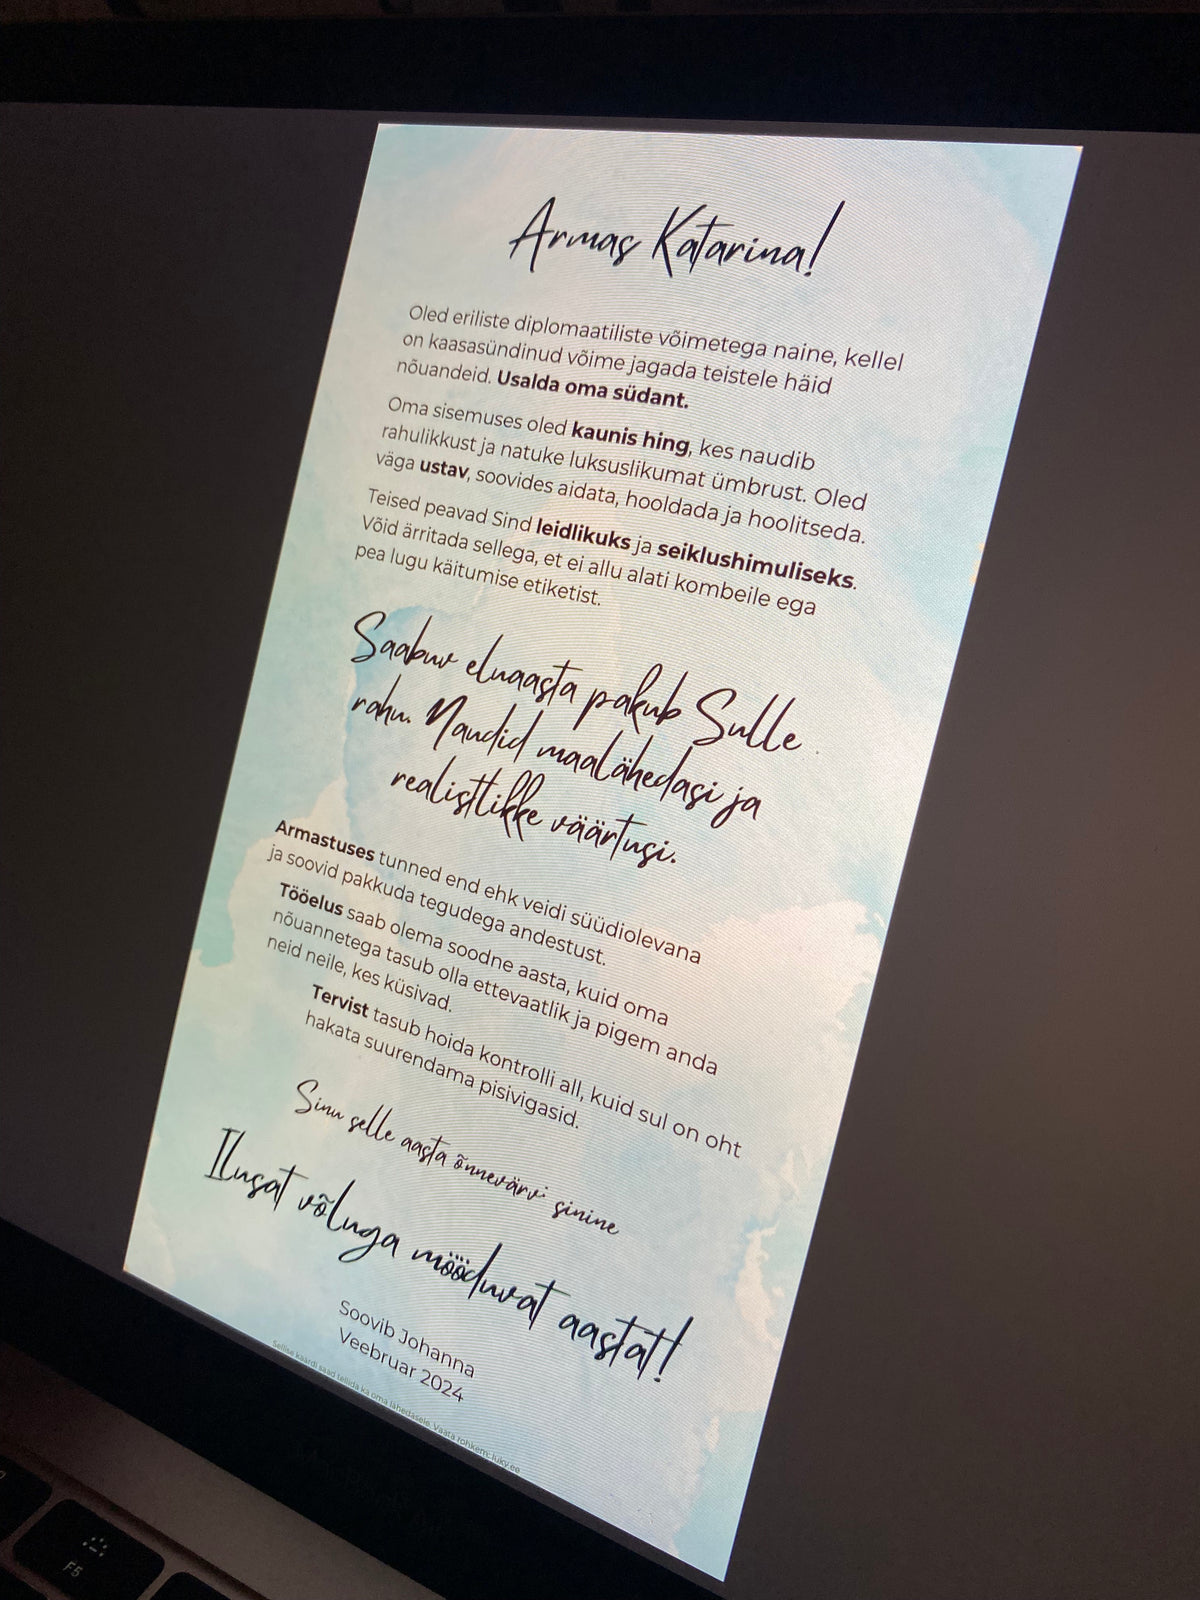 Armas Katarina!
Oled eriliste diplomaatiliste võimetega naine, kellel
on kaasasündinud võime jagada teistele häid
nõuandeid. Usalda oma südant.
Oma sisemuses oled kaunis hing, kes naudib
rahulikkust ja natuke luksuslikumat ümbrust. Oled
väga ustav, soovides aidata, hooldada ja hoolitseda.
Teised peavad Sind leidlikuks ja seiklushimuliseks.
Võid ärritada sellega, et ei allu alati kombeile ega
pea lugu käitumise etiketist.
Saabuv eluaasta pakub Sulle
rahu. Naudid maalähedasi ja
realistlikke väärtusi.
Armastuses tunned end ehk veidi süüdiolevana
ja soovid pakkuda tegudega andestust.
Tööelus saab olema soodne aasta, kuid oma
nõuannetega tasub olla ettevaatlik ja pigem anda
neid neile, kes küsivad.
Tervist tasub hoida kontrolli all, kuid sul on oht
hakata suurendama pisivigasid.
Sinu selle aasta õnnevärv: sinine
Ilusat võluga mööduvat aastat!
Soovib Johanna
Veebruar 2024
Sellise kaardi saad tellida ka oma lähedasele. Vaata rohkem: luky.ee
F5